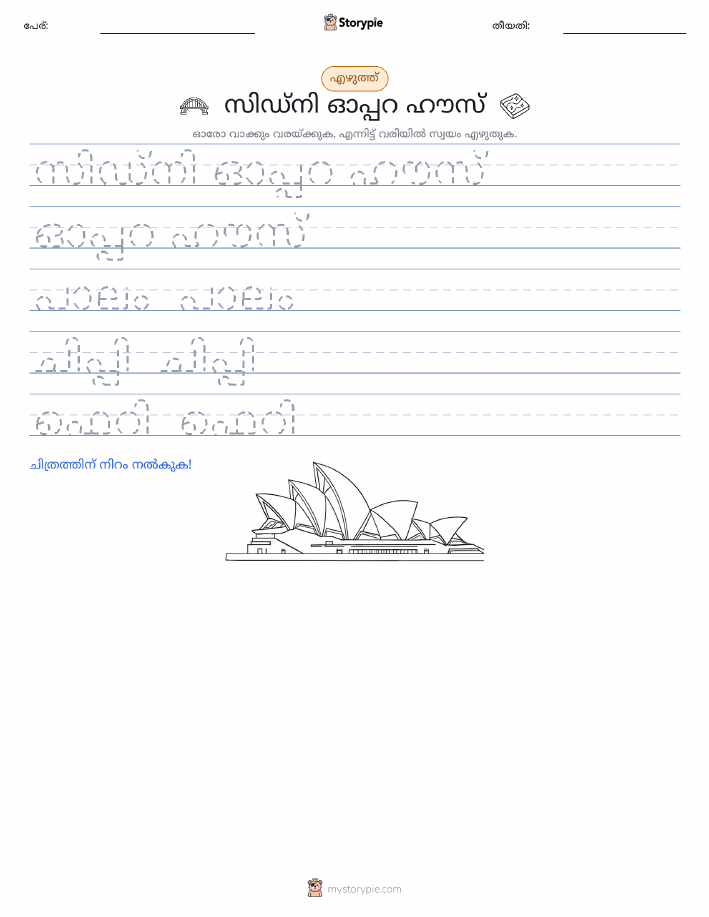 പേര്: Storypie തീയതി:
എഴുത്ത്
സിഡ്നി ഓപ്പറ ഹൗസ്
ഓരോ വാക്കും വരയ്ക്കുക, എന്നിട്ട് വരിയിൽ സ്വയം എഴുതുക.
സിഡ്നി ഓപ്പറ ഹൗസ്
ഓപ്പറ ഹൗസ്
പാലം പാലം
ചിപ്പി ചിപ്പി
ഫെറി ഫെറി
ചിത്രത്തിന് നിറം നൽകുക!
mystorypie.com